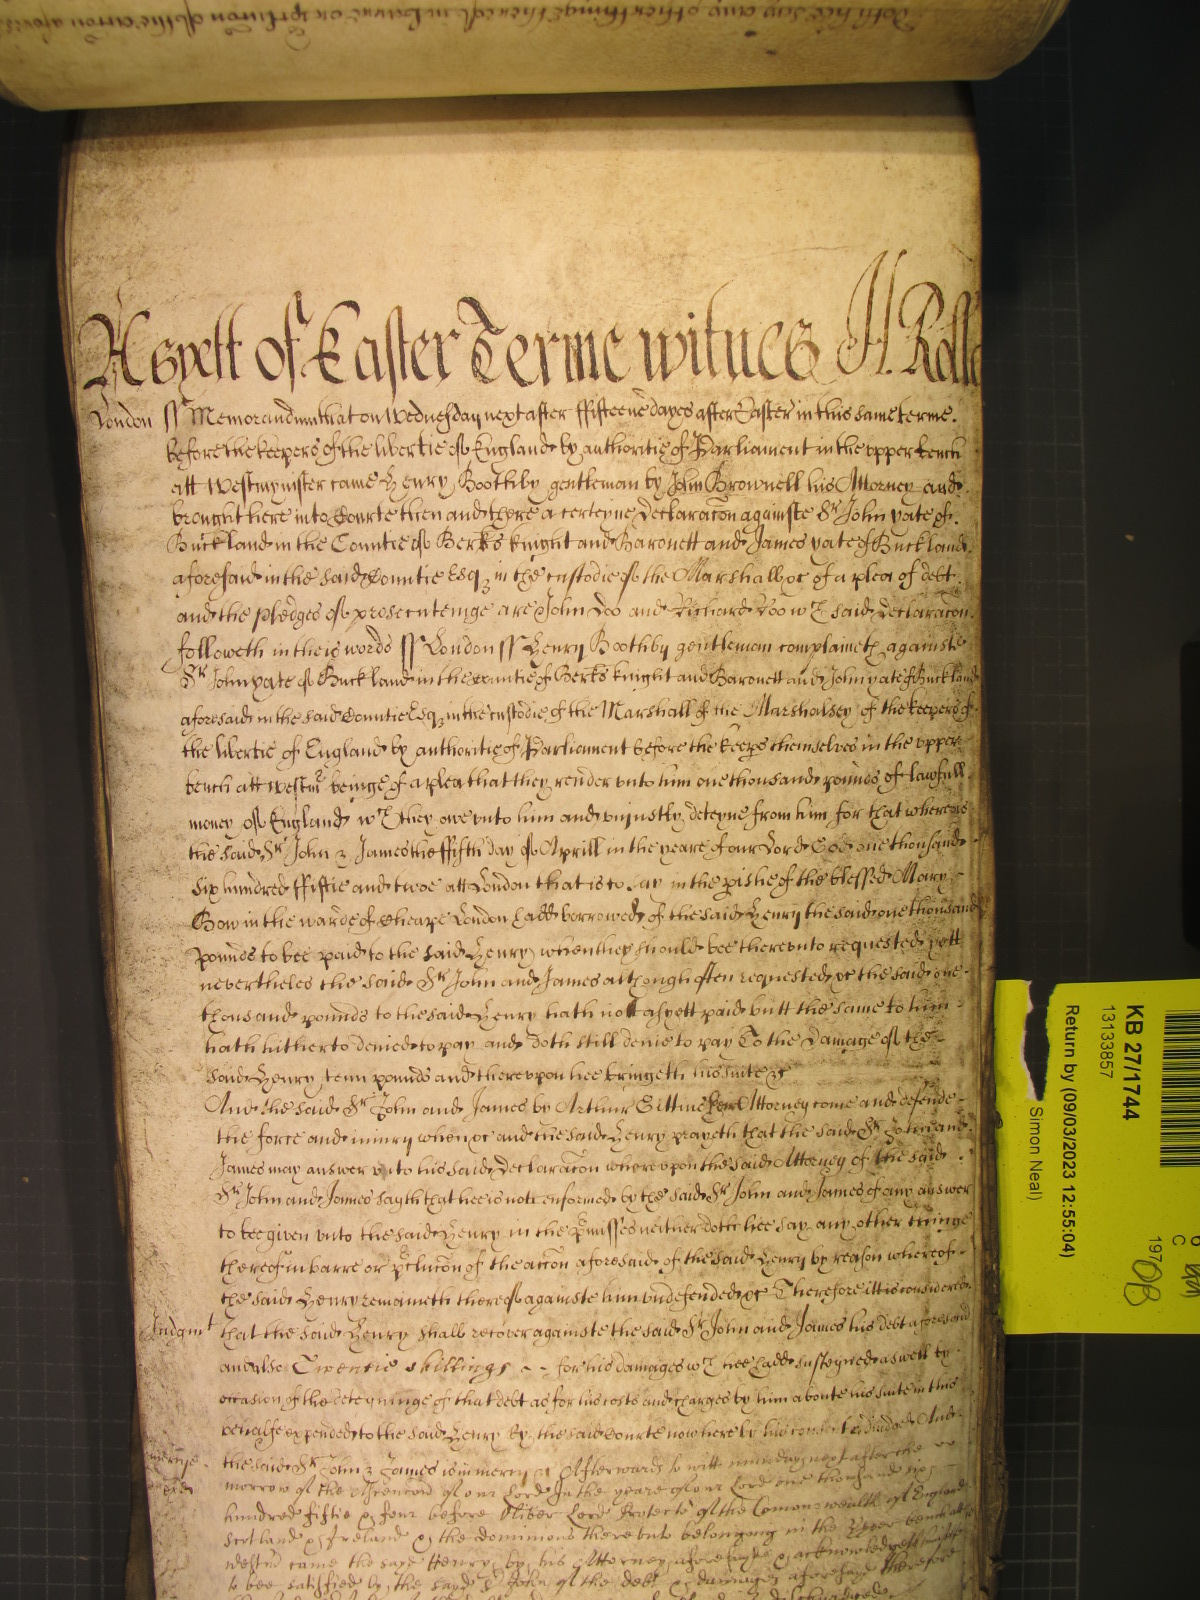 As yett of Easter Terme witnes H. Rolle
London ss Memorandum that on Wednesday next after ffifteene dayes after Easter in this same terme
before the keepers of the libertie of England by authoritie of Parliament in the vpper bench
att Westmynister came Henry Boothby gentleman by John Brownell his Attorney and
brought here into Courte then and there a certeyne declaracon againste Sr John yate of
Buckland in the Countie of Berks knight and Baronett and James yate of Buckland
aforesaid in the said Countie Esqz in the custodie of the Marshall &c of a plea of debt
and the pledges of prosecuteinge are John Doo and Richard Roo wch said declaracon
followeth in theis words ss London ss Henry Boothby gentleman complaineth againste
Sr John yate of Buckland in the Countie of Berks knight and Baronett and John yate of Buckland
aforesaid in the said Countie Esqz in the custodie of the Marshall of the Marshalsey of the keepers of
the libertie of England by authoritie of Parliament before the keeps themselves in the vpper
bench att Westmr beinge of a plea that they render vnto him one thousand pounds of lawfull
money of England wch they owe vnto him and vniustly deteyne from him for that whereas
the said Sr John & James the ffifth day of Aprill in the yeare of our Lord God one thousand
six hundred ffiftie and twoe att London that is to say in the pishe of the blessed Mary
Bow in the warde of Cheape London hadd borrowed of the said Henry the said one thousand
pounds to bee paid to the said Henry when they should bee therevnto requested yett
neverthelés the said Sr John and James although often requested &c the said one
thousand pounds to the said Henry hath not as yett paid butt the same to him
hath hitherto denied to pay and doth still denie to pay To the damage of the
said Henry tenn pounds and therevpon hee bringeth his suite &c
And the said Sr John and James by Arthur Gittins their Attorney come and defende
the force and iniury when &c and the said Henry prayeth that the said Sr John and
James may answer vnto his said declaracon wherevpon the said Attorney of the said
Sr John and James sayth that hee is not enformed by the said Sr John and James of any answer
to bee given vnto the said Henry in the pmisses neither doth hee say any other thinge
thereof in barre or pclucon of the accon aforesaid of the said Henry by reason whereof
the said Henry remaineth thereof againste him vndefended &c Therefore itt is considered
Judgmt that the said Henry shall recover againste the said Sr John and James his debt aforesaid
and alsoe Twentie shillings for his damages wch hee hadd susteyned aswell by
occasion of the deteyninge of that debt as for his costs and charges by him aboute his suite in this
behalfe expended to the said Henry by the said Courte now here by his consent adiudged And
the said Sr John & James is in mercy &c Afterwards to witt munday next after the
morrow of the Ascencon of our Lord In the yeare of our Lord one thousand six
hundred fiftie & four before Oliver Lord Protector of the Comonwealth of England
Scotland & Ireland & the dominions therevnto belonging in the Vpper bench att
Westmr came the sayd Henry by his Attorney aforesayd & acknowledgeth himselfe
to bee satisfied by the sayd Sr John of the debt & damages aforesayd Therefore
KB 27/1744
1313857
Return by (09/03/2023 12:55:04)
Simon Neal)